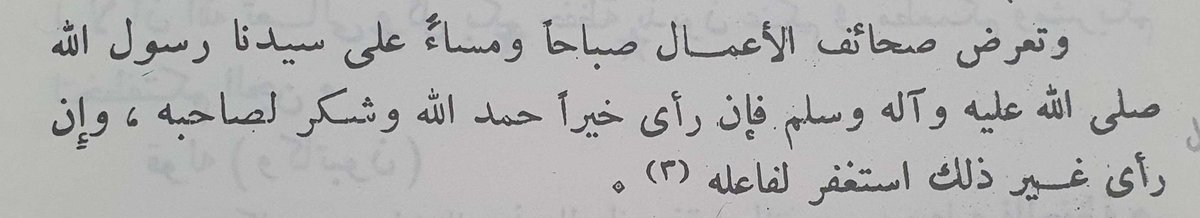 وتعرض صحائف الأعمـــال صباحاً ومساءً على سيدنا رسول الله
صلى الله عليه وآله وسلم فإن رأى خيراً حمد الله وشكر لصاحبه ، وإن
رأى غـــير ذلك استغفر لفاعله (٣) .